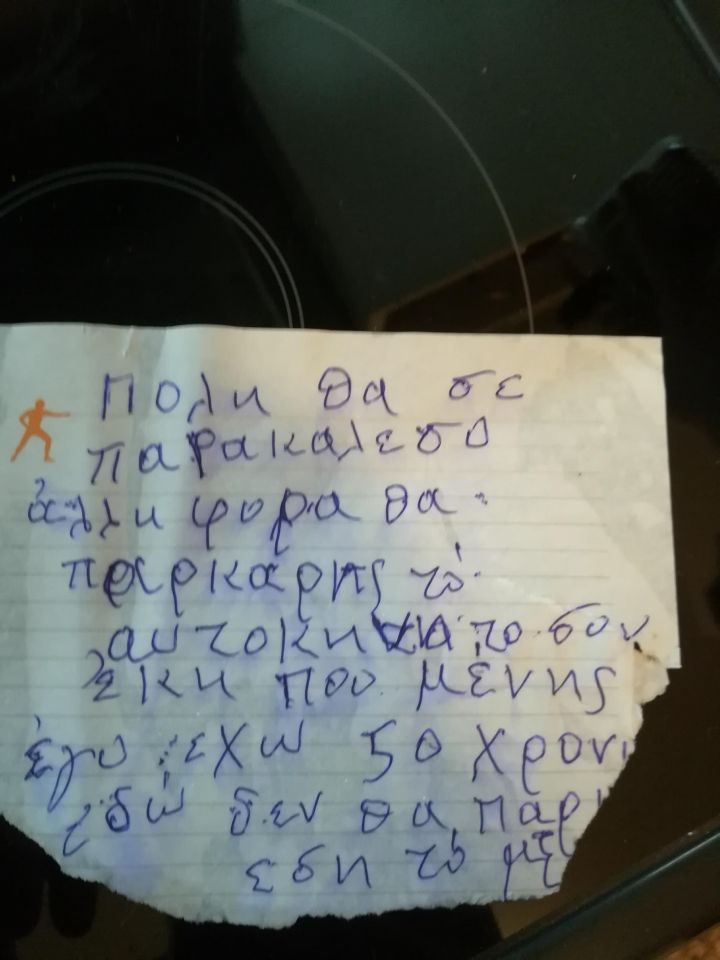 Πολη θα σε
παρακαλεσο
άλλη φορα θα
παρκάρης τό
αυτοκηνα το σου
έκη που μένης
έγο εχω 50 χρον
εδώ δεν θα παρ
εση το